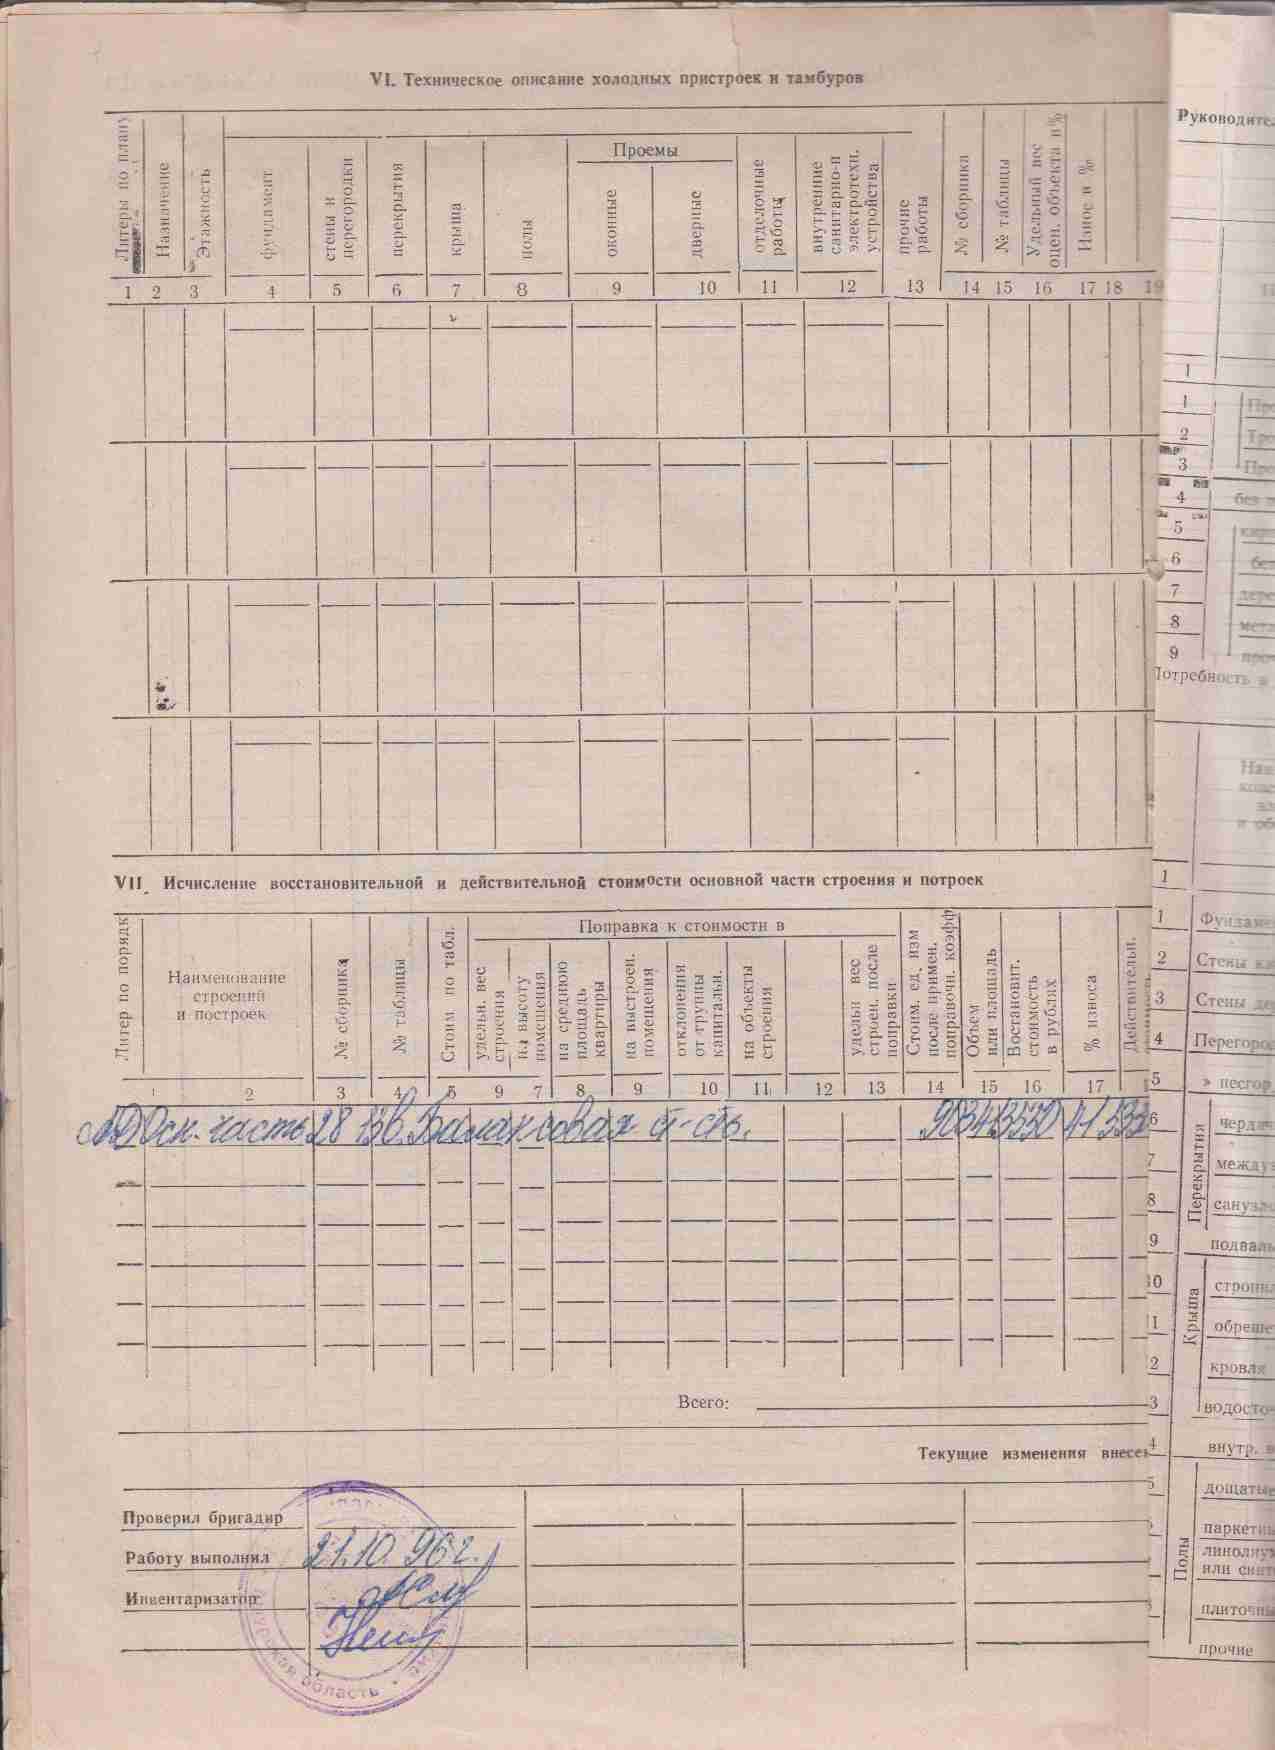 VI. Техническое описание холодных пристроек и тамбуров
Литеры по плану
Назначение
Этажность
фундамент
стены и перегородки
перекрытия
крыша
полы
Проемы
оконные
дверные
отделочные работы
внутренние санитарно-и электротехн. устройства
прочие работы
№ сборника
№ таблицы
Удельный вес оцен. объекта в %
Износ в %
1 2 3 4 5 6 7 8 9 10 11 12 13 14 15 16 17 18 19
VII. Исчисление восстановительной и действительной стоимости основной части строения и потроек
Литер по порядк
Наименование
строений
и построек
№ сборника
№ таблицы
Стоим по табл.
Поправка к стоимости в
удельн. вес строения
на высоту помещения
на среднюю площадь квартиры
на выстроен. помещения
отклонения от группы капитальн.
на объекты строения
удельн вес строен. после поправки
Стоим. ед. изм после примен. поправочн. коэфф
Объем или площадь
Востановит. стоимость в рублях
% износа
Действительн.
1 2 3 4 5 9 7 8 9 10 11 12 13 14 15 16 17
Осн. часть 28 13в Балансовая ст-сть.
Всего:
Текущие изменения внесе
Проверил бригадир
Работу выполнил 21.10.96г.
Инвентаризатор
область
Руководите
1
1 Про
2 Тро
3 Про
4 без п
5 кирп
6 без
7 дере
8 мета
9 проч
Потребность в
Наи
конс
эл
и об
1
1 Фундаме
2 Стены ка
3 Стены де
4 Перегоро
5 » песгор.
Перекрытия
6 чердач
7 между
8 сануэл
9 подваль
Крыша
10 стропил
11 обреше
2 кровля
3 водосто
4 внутр. в
Полы
5 дощатые
паркетн
линолиу
или синт
плиточны
прочие